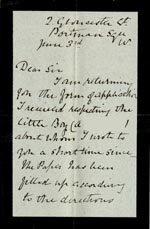 2 Gloucester St
Portman Sqre
W
June 3rd
Dear Sir
I am returning
you the form of application
I received respecting the
little Boy (A !
about whom I wrote to
you a short time since
The Paper has been
filled up according
to the directions